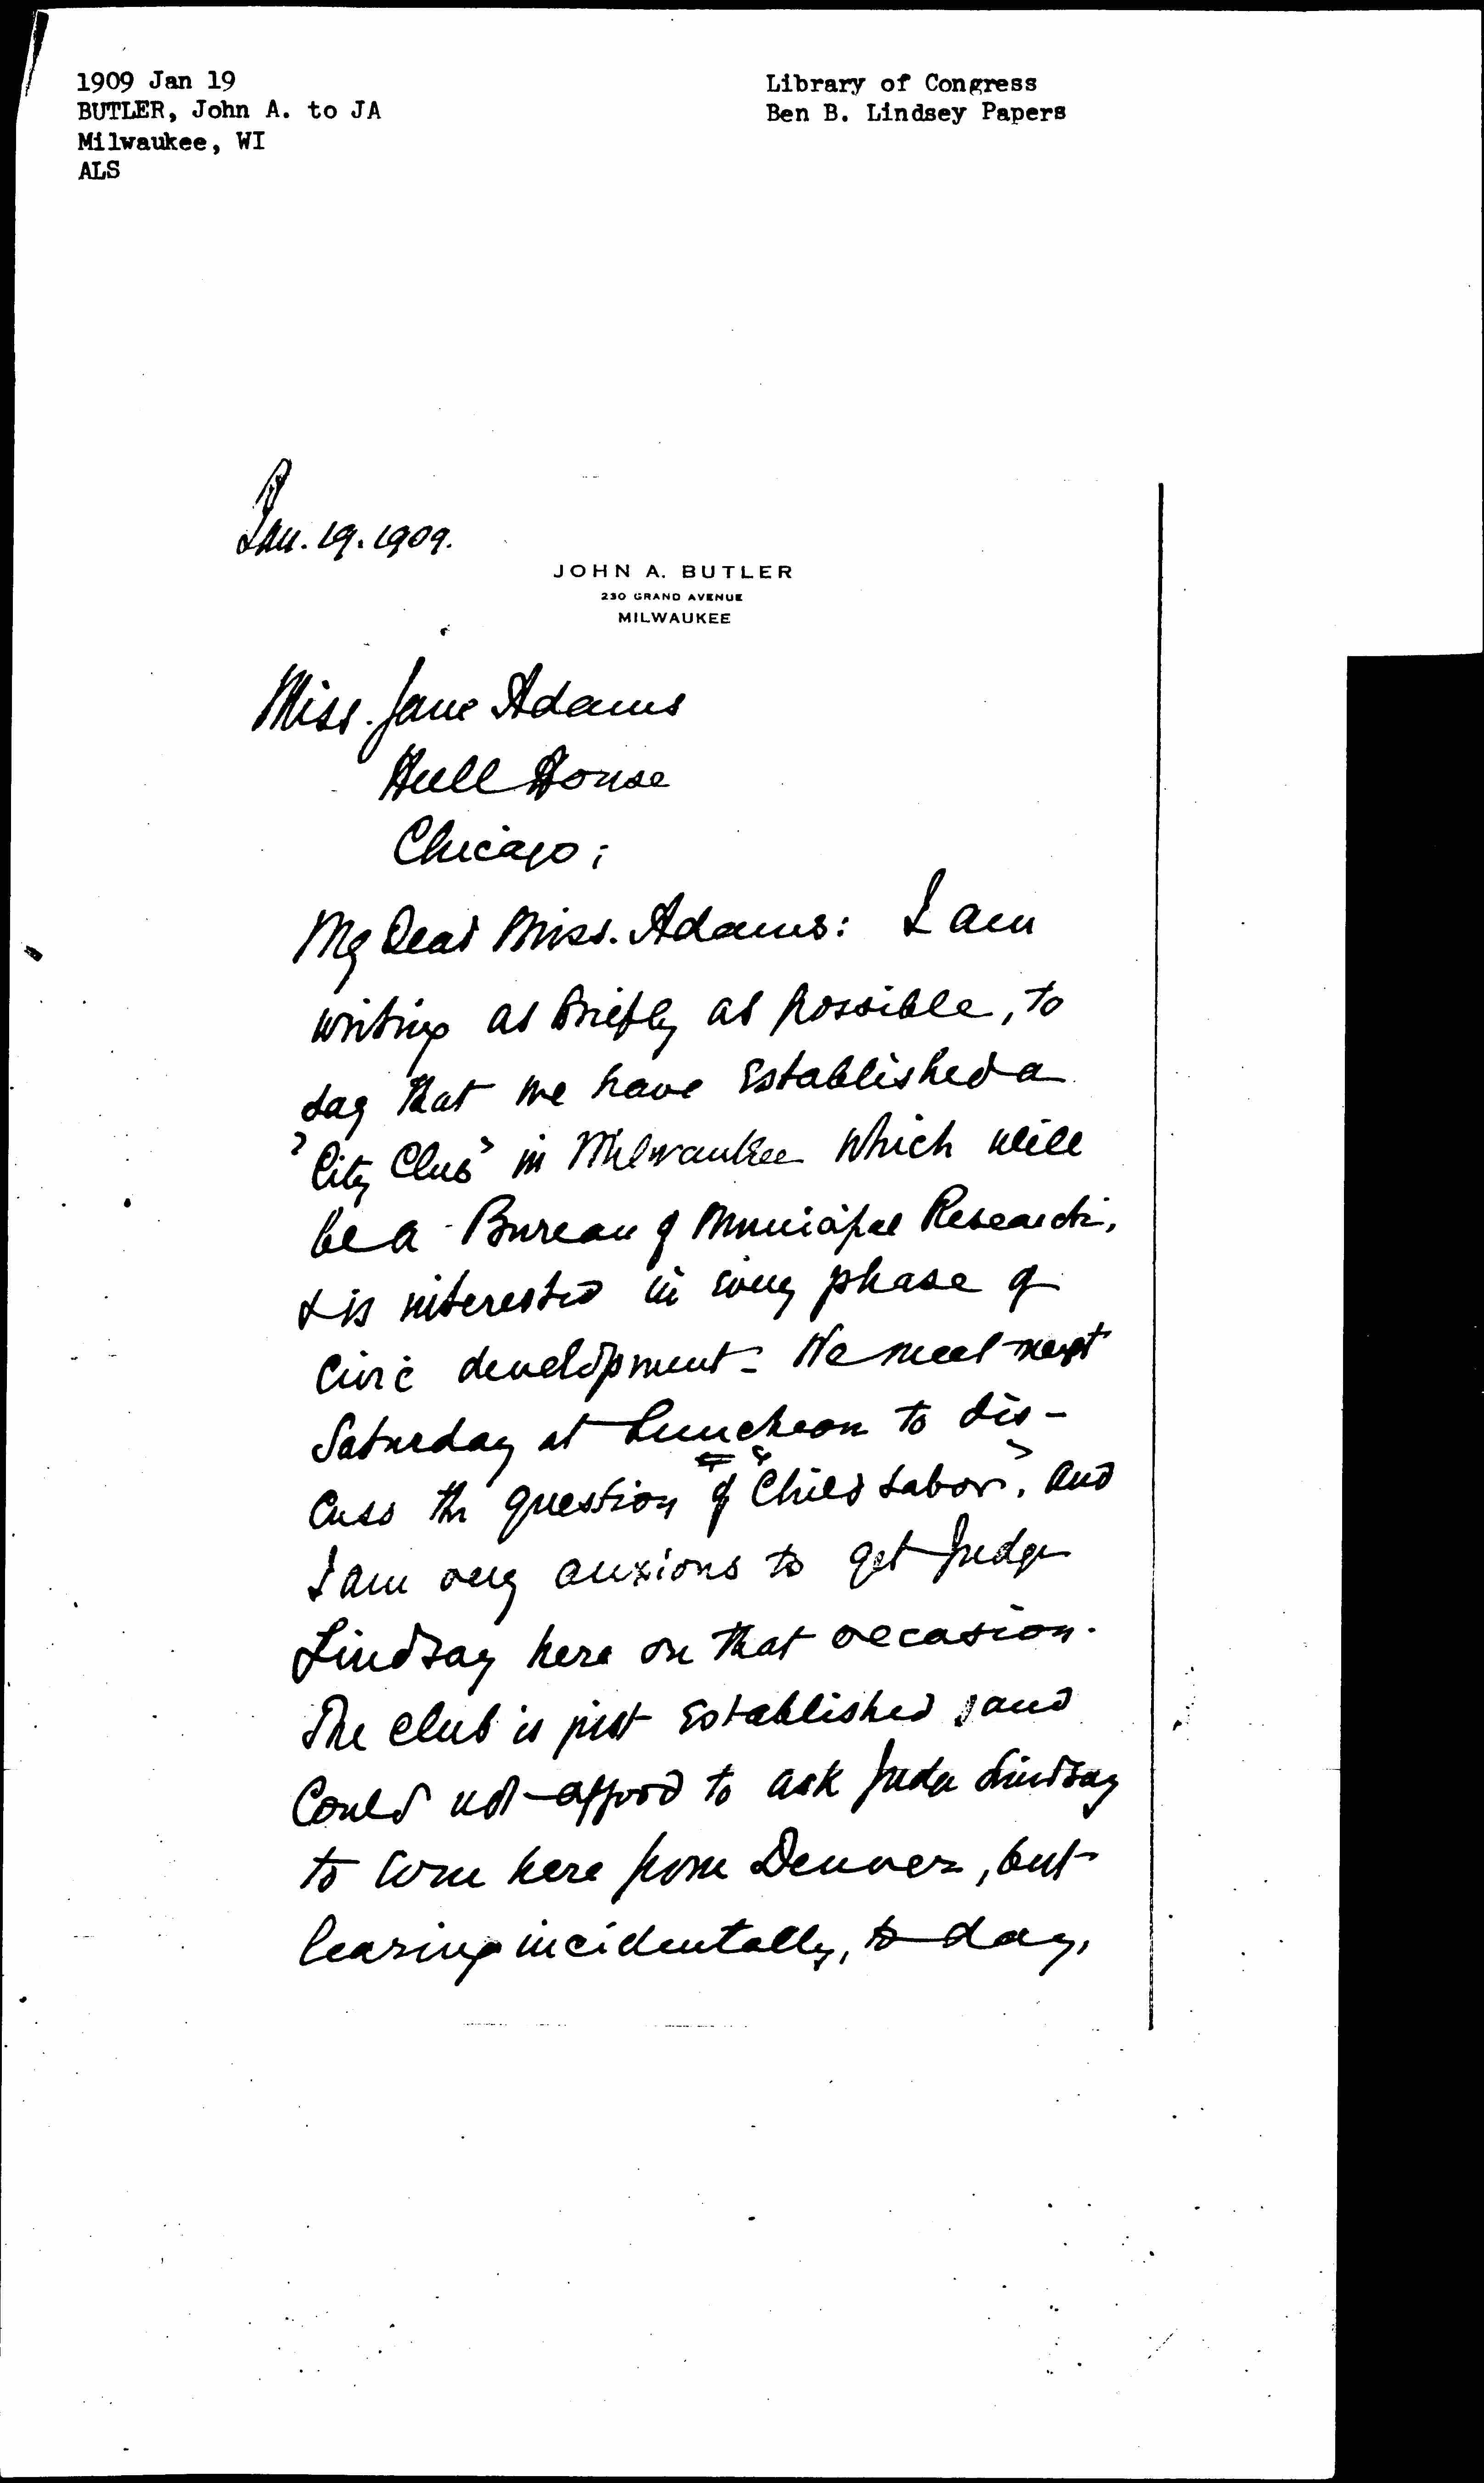 1909 Jan 19
BUTLER, John A. to JA
Milwaukee, WI
ALS
Library of Congress
Ben B. Lindsey Papers
Jan. 19. 1909.
JOHN A. BUTLER
230 GRAND AVENUE
MILWAUKEE
Miss. Jane Adams
Hull House
Chicago;
My Dear Miss. Adams: I am
writing as briefly as possible, to
say that we have established a
"City Club" in Milwaukee which will
be a Bureau of Municipal Research,
& is interested in every phase of
civic development - We meet next
Saturday at Luncheon to dis-
cuss the question of "Child Labor", and
I am very anxious to get Judge
Lindsay here on that occasion.
The club is just established, and
could not afford to ask Judge Lindsay
to come here from Denver, but
learing incidentally, to day,